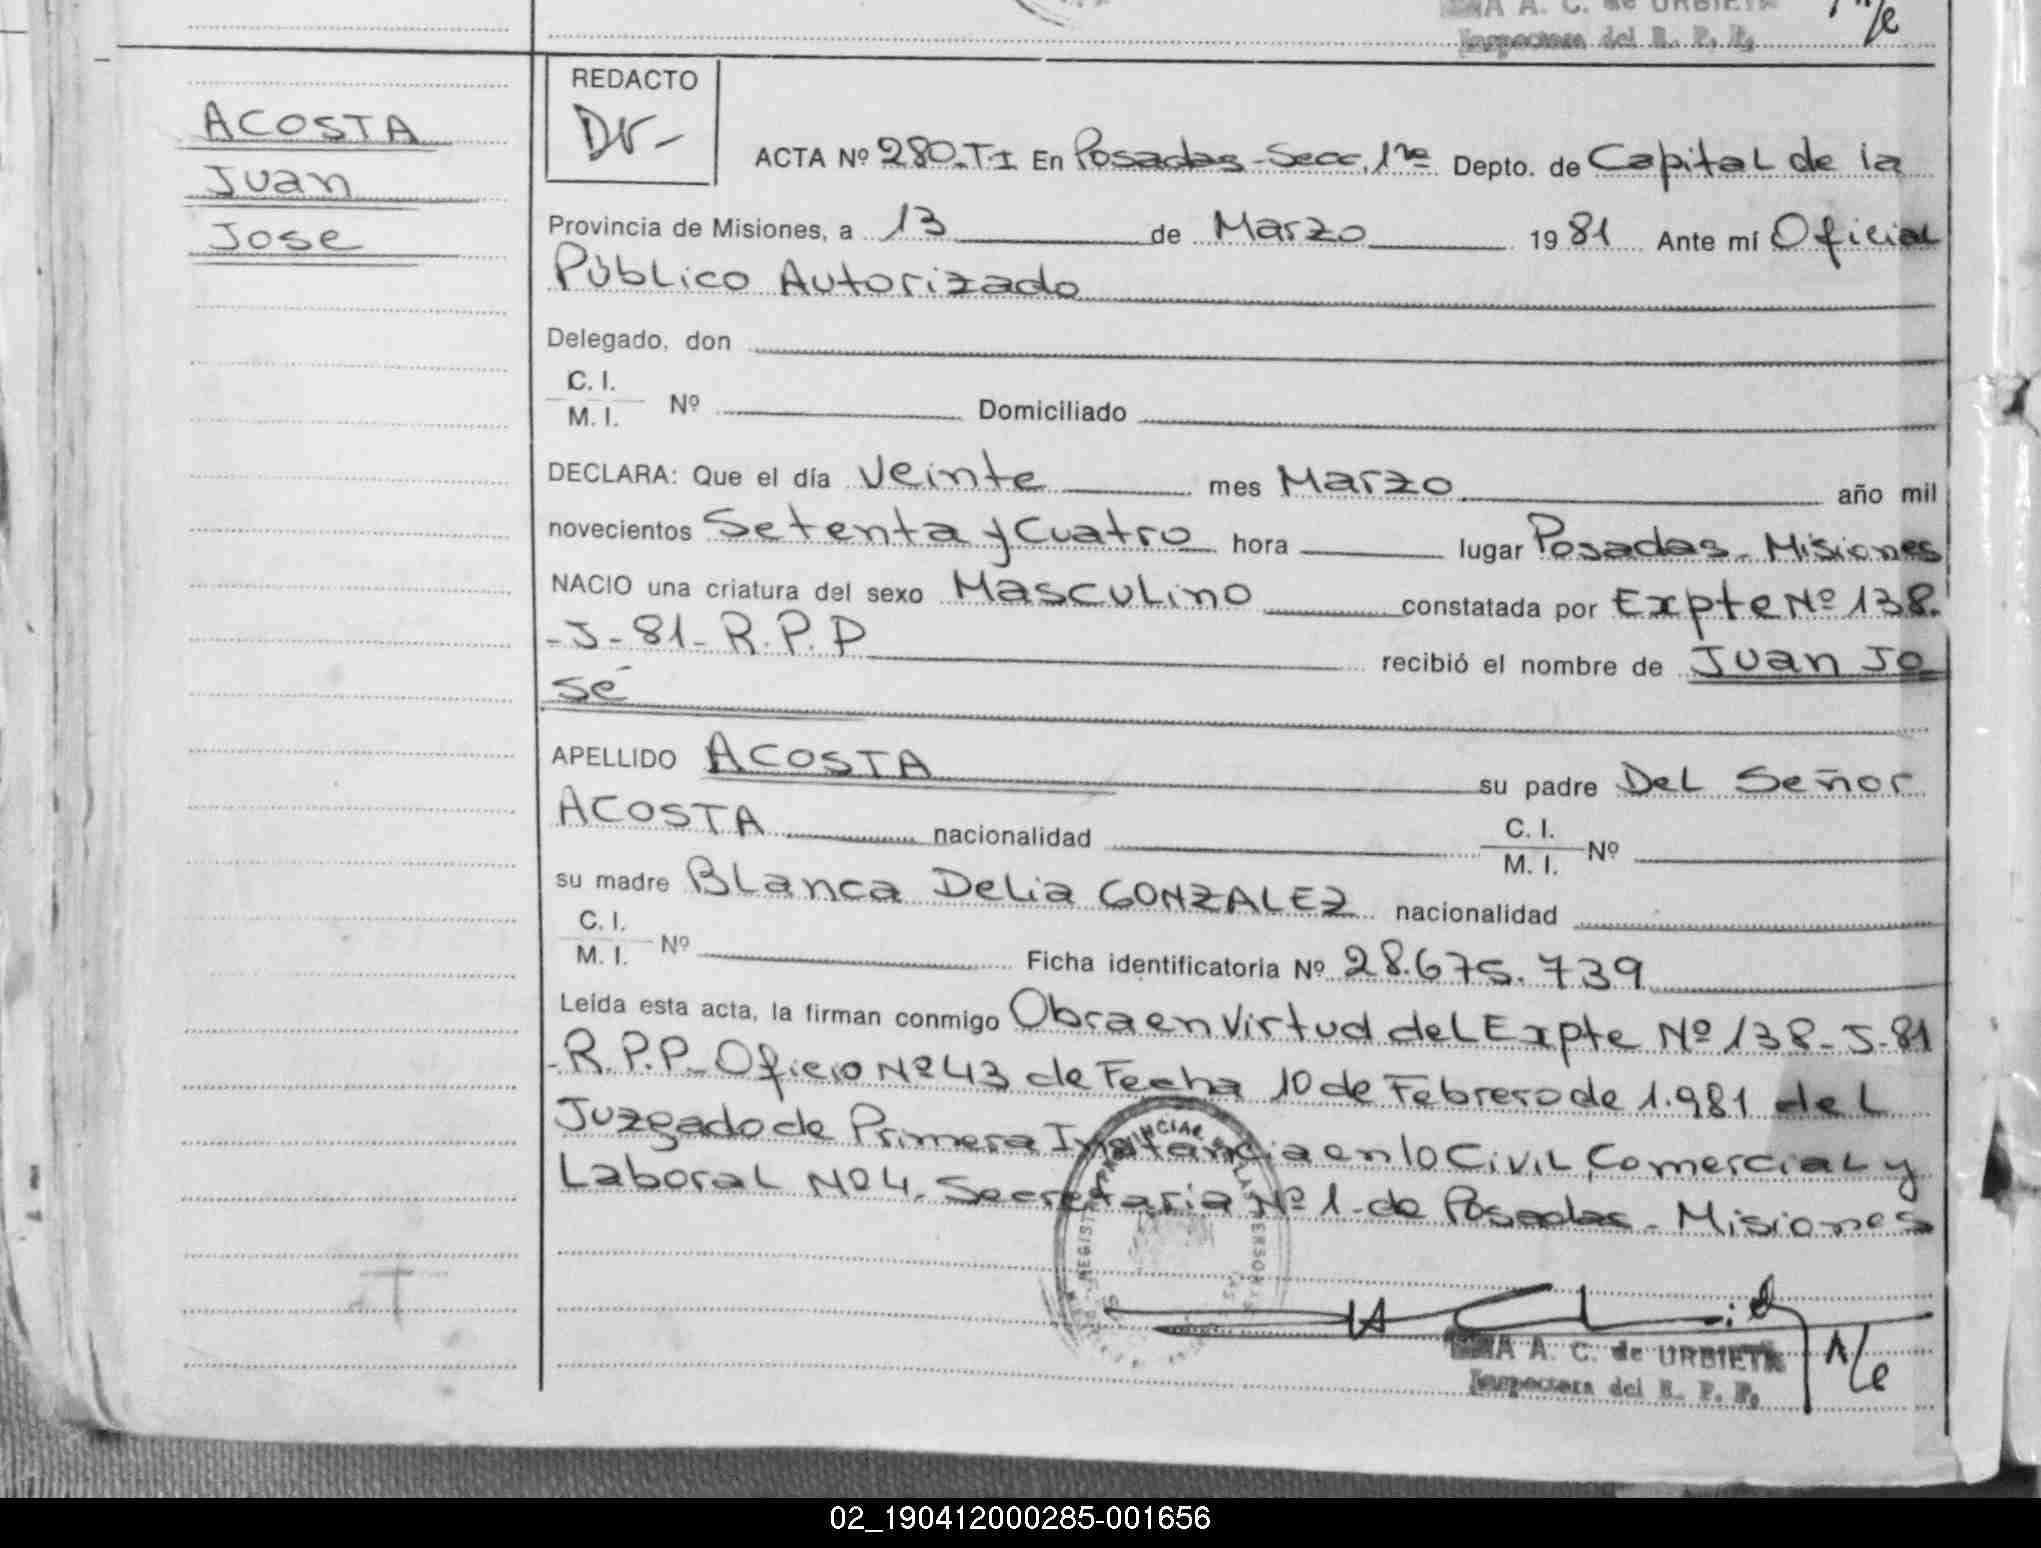 A. C. de URBIETA
Inspectora del R. P. P.
ACOSTA
Juan
Jose
REDACTO
ACTA Nº 280-T-I En Posadas-Secc. 1ra Depto. de Capital de la
Provincia de Misiones, a 13 de Marzo 19 81 Ante mí Oficial
Público Autorizado
Delegado, don
C. I.
M. I. Nº Domiciliado
DECLARA: Que el día Veinte mes Marzo año mil
novecientos Setenta y Cuatro hora lugar Posadas-Misiones
NACIO una criatura del sexo Masculino constatada por Expte Nº 138.
-J-81-R.P.P recibió el nombre de Juan Jo
sé
APELLIDO ACOSTA su padre Del Señor
ACOSTA nacionalidad C. I.
M. I. Nº
su madre Blanca Delia GONZALEZ nacionalidad
C. I.
M. I. Nº Ficha identificatoria Nº 28.675.739
Leída esta acta, la firman conmigo Obra en Virtud del Expte Nº 138-J-81
-R.P.P-Oficio Nº 43 de Fecha 10 de Febrero de 1.981 del
Juzgado de Primera Instancia en lo Civil, Comercial y
Laboral Nº 4. Secretaria Nº 1-de Posadas-Misiones
A. C. de URBIETA
Inspectora del R. P. P.
02_190412000285-001656